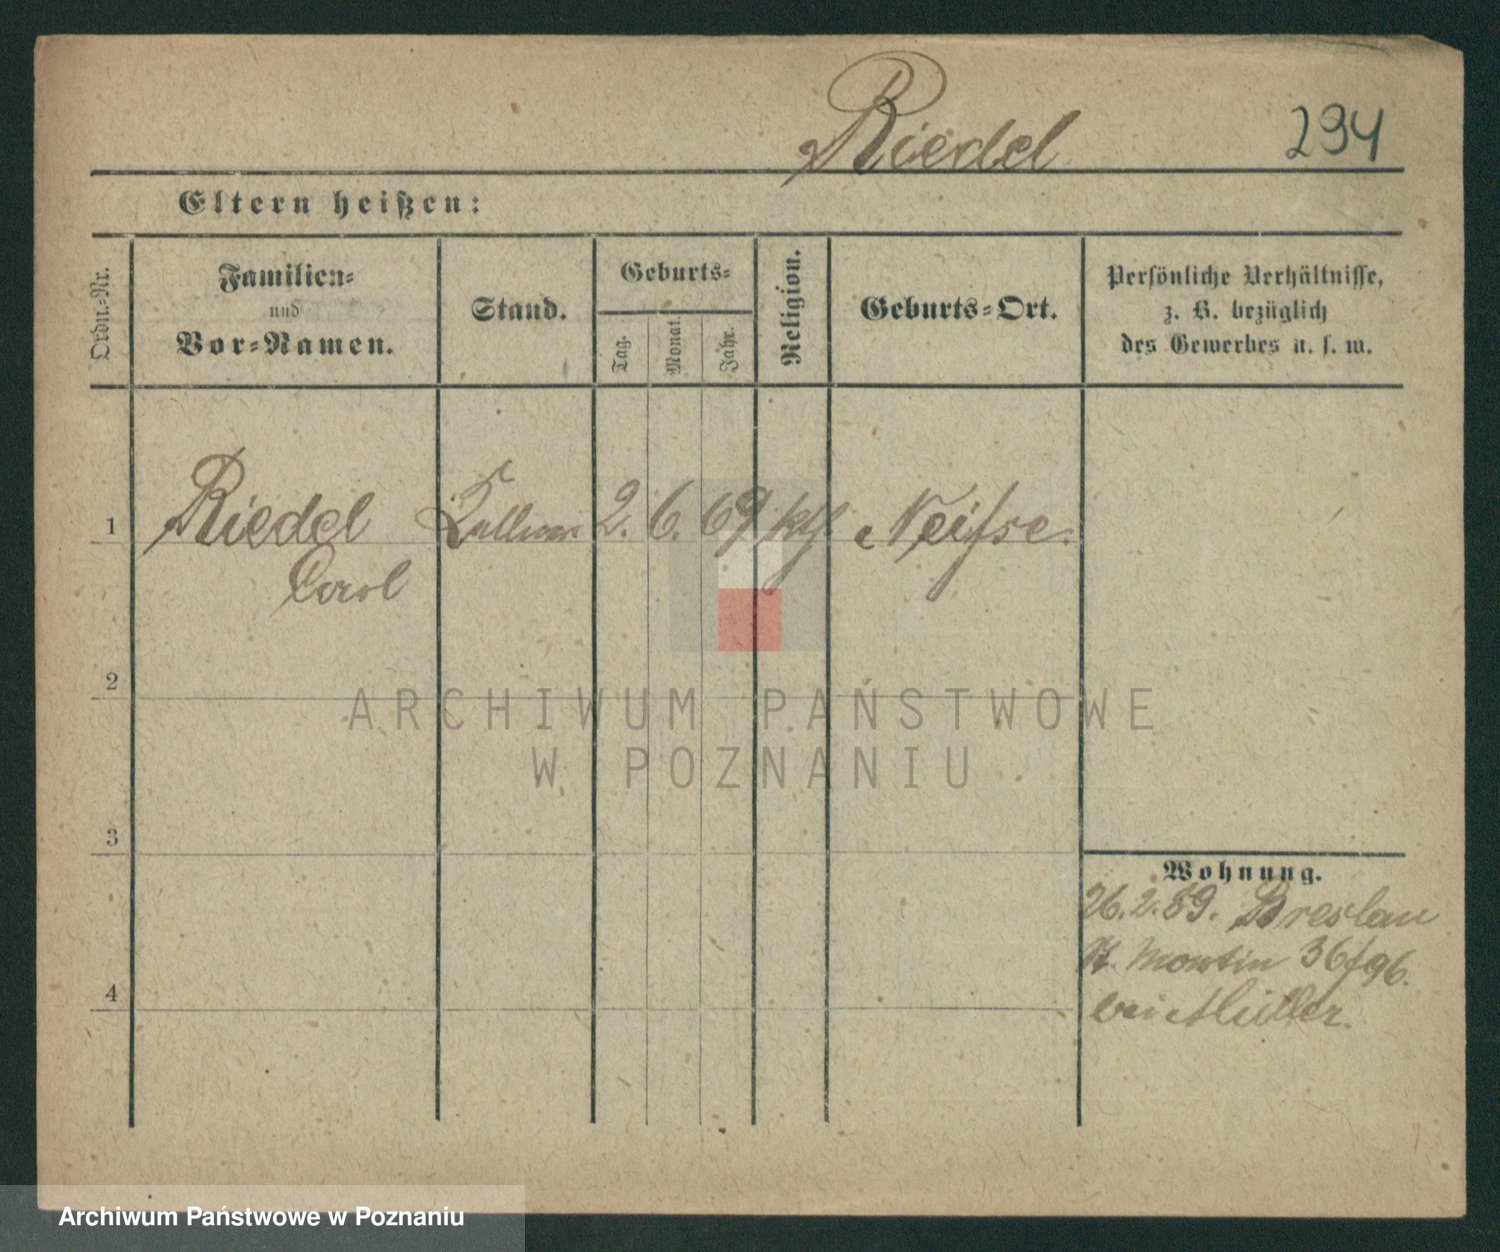 Riedel 294
Eltern heißen:
Ordn.-Nr.
Familien-
und
Vor-Namen.
Stand.
Geburts-
Tag.
Monat.
Jahr.
Religion.
Geburts-Ort.
Persönliche Verhältnisse,
z. B. bezüglich
des Gewerbes u. s. w.
1 Riedel Kellner. 2. 6. 69 kth. Neisse.
Carl
2
3
4
Wohnung.
26. 2. 89. Breslau
St. Martin 36/96.
bei Müller.
ARCHIWUM PAŃSTWOWE
W POZNANIU
Archiwum Państwowe w Poznaniu